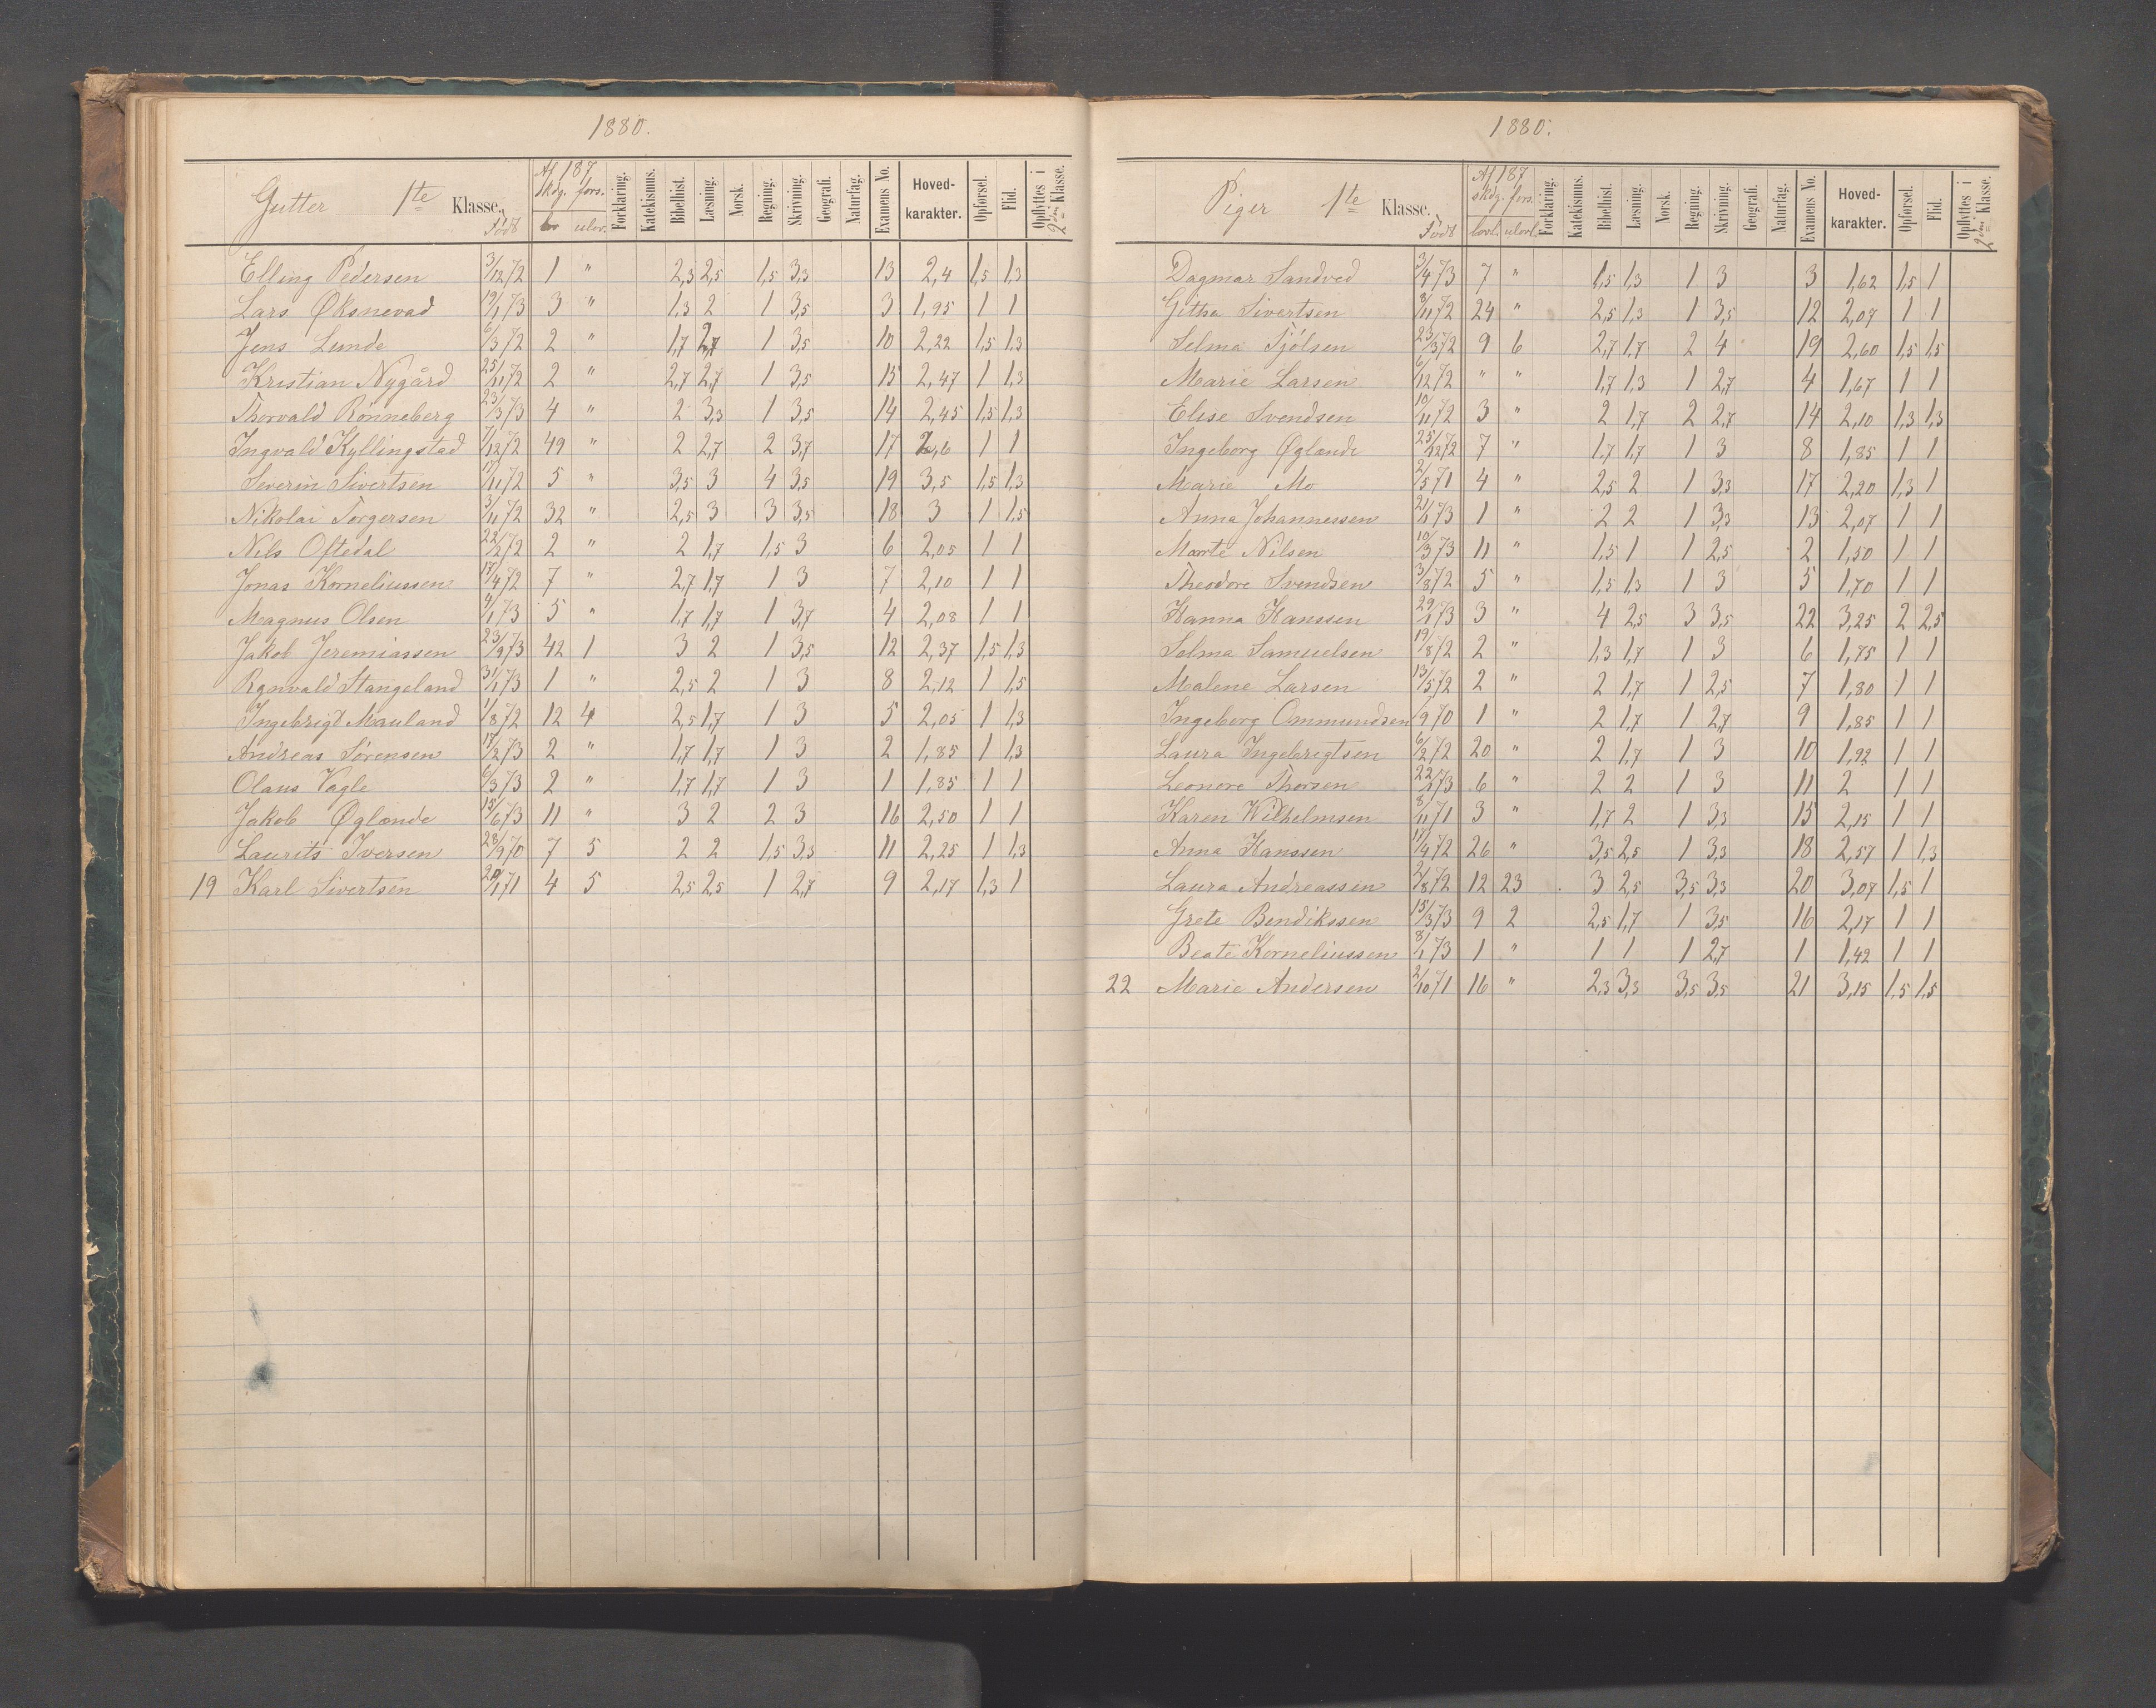 1880.
Gutter 1te Klasse. Født Af 187 skdg. fors. lov ulov. Forklaring. Katekismus. Bibelhist. Læsning. Norsk. Regning. Skrivning. Geografi. Naturfag. Examens No. Hoved-karakter. Opførsel. Flid. Opflyttes i 2den Klasse.
Elling Pedersen 3/12 72 1 " 2,3 2,5 1,5 3,3 13 2,4 1,5 1,3
Lars Øksnevad 19/1 73 3 " 1,3 2 1 3,5 3 1,95 1 1
Jens Lunde 6/3 72 2 " 1,7 2,7 1 3,5 10 2,22 1,5 1,3
Kristian Nygård 25/11 72 2 " 2,7 2,7 1 3,5 15 2,47 1 1,3
Thorvald Rønneberg 23/3 73 4 " 2 3,3 1 3,5 14 2,45 1,5 1,3
Ingvald Kyllingstad 7/12 72 49 " 2 2,7 2 3,7 17 2,6 1 1
Severin Sivertsen 17/11 72 5 " 3,5 3 4 3,5 19 3,5 1,5 1,3
Nikolai Torgersen 3/11 72 32 " 2,5 3 3 3,5 18 3 1 1,5
Nils Oftedal 22/2 72 2 " 2 1,7 1,5 3 6 2,05 1 1
Jonas Korneliussen 17/4 72 7 " 2,7 1,7 1 3 7 2,10 1 1
Magnus Olsen 4/1 73 5 " 1,7 1,7 1 3,7 4 2,08 1 1
Jakob Jeremiassen 23/9 73 42 1 3 2 1 3,5 12 2,37 1,5 1,3
Rgnvald Stangeland 31/1 73 1 " 2,5 2 1 3 8 2,12 1 1,5
Ingebrigt Mauland 1/8 72 12 4 2,5 1,7 1 3 5 2,05 1 1,3
Andreas Sørensen 17/2 73 2 " 1,7 1,7 1 3 2 1,85 1 1,3
Olaus Vagle 6/3 73 2 " 1,7 1,7 1 3 1 1,85 1 1
Jakob Øglænde 15/6 73 11 " 3 2 2 3 16 2,50 1 1
Laurits Iversen 28/9 70 7 5 2 2 1,5 3,5 11 2,25 1 1,3
19 Karl Sivertsen 20/1 71 4 5 2,5 2,5 1 2,7 9 2,17 1,3 1
1880.
Piger 1te Klasse. Født Af 187 skdg. fors. lovl. ulovl. Forklaring. Katekismus. Bibelhist. Læsning. Norsk. Regning. Skrivning. Geografi. Naturfag. Examens No. Hoved-karakter. Opførsel. Flid. Opflyttes i 2den Klasse.
Dagmar Sandved 3/4 73 7 " 1,5 1,3 1 3 3 1,62 1,5 1
Githa Sivertsen 8/11 72 24 " 2,5 1,3 1 3,5 12 2,07 1 1
Selma Tjølsen 23/3 72 9 6 2,7 1,7 2 4 19 2,60 1,5 1,5
Marie Larsen 6/12 72 " " 1,7 1,3 1 2,7 4 1,67 1 1
Elise Svendsen 10/11 72 3 " 2 1,7 2 2,7 14 2,10 1,3 1,3
Ingeborg Øglænde 25/12 72 7 " 1,7 1,7 1 3 8 1,85 1 1
Marie Mo 2/5 71 4 " 2,5 2 1 3,3 17 2,20 1,3 1
Anna Johannessen 21/1 73 1 " 2 2 1 3,3 13 2,07 1 1
Marte Nilsen 10/3 73 11 " 1,5 1 1 2,5 2 1,50 1 1
Theodore Svendsen 3/8 72 5 " 1,5 1,3 1 3 5 1,70 1 1
Hanna Hanssen 29/1 73 3 " 4 2,5 3 3,5 22 3,25 2 2,5
Selma Samuelsen 19/8 72 2 " 1,3 1,7 1 3 6 1,75 1 1
Malene Larsen 13/5 72 2 " 2 1,7 1 2,5 7 1,80 1 1
Ingeborg Ommundsen /9 70 1 " 2 1,7 1 2,7 9 1,85 1 1
Laura Ingebrigtsen 6/2 72 20 " 2 1,7 1 3 10 1,92 1 1
Leonore Thorsen 22/2 73 6 " 2 2 1 3 11 2 1 1
Karen Wilhelmsen 8/11 71 3 " 1,7 2 1 3,3 15 2,15 1 1
Anna Hanssen 17/4 72 26 " 3,5 2,5 1 3,3 18 2,57 1 1,3
Laura Andreassen 2/8 72 12 23 3 2,5 3,5 3,3 20 3,07 1,5 1
Grete Bendikssen 15/3 73 9 2 2,5 1,7 1 3,5 16 2,17 1 1
Beate Korneliussen 8/1 73 1 " 1 1 1 2,7 1 1,42 1 1
22 Marie Andersen 2/10 71 16 " 2,3 3,3 3,5 3,5 21 3,15 1,5 1,5